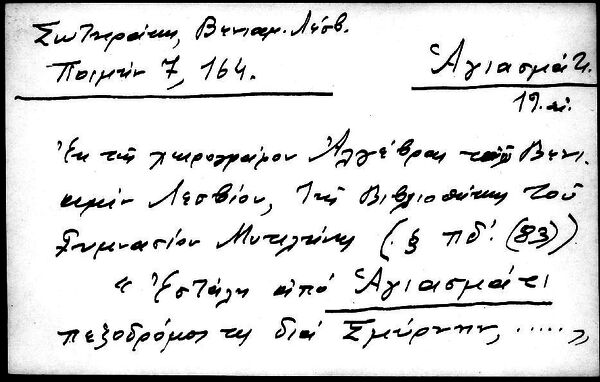 Σωτηράκη, Βενιαμ. Λέσβ.
Ποιμήν 7, 164.
Ἁγιασμάτι
19. αἰ.
Ἐκ τῆς χειρογράφου Ἀλγέβρας τοῦ Βενι
αμίν Λεσβίου, τῆς Βιβλιοθήκης τοῦ
Γυμνασίου Μυτιλήνης (§ πδ΄. (83))
“ Ἐστάλη ἀπό Ἁγιασμάτι
πεζοδρόμος τις διά Σμύρνην, ..... „